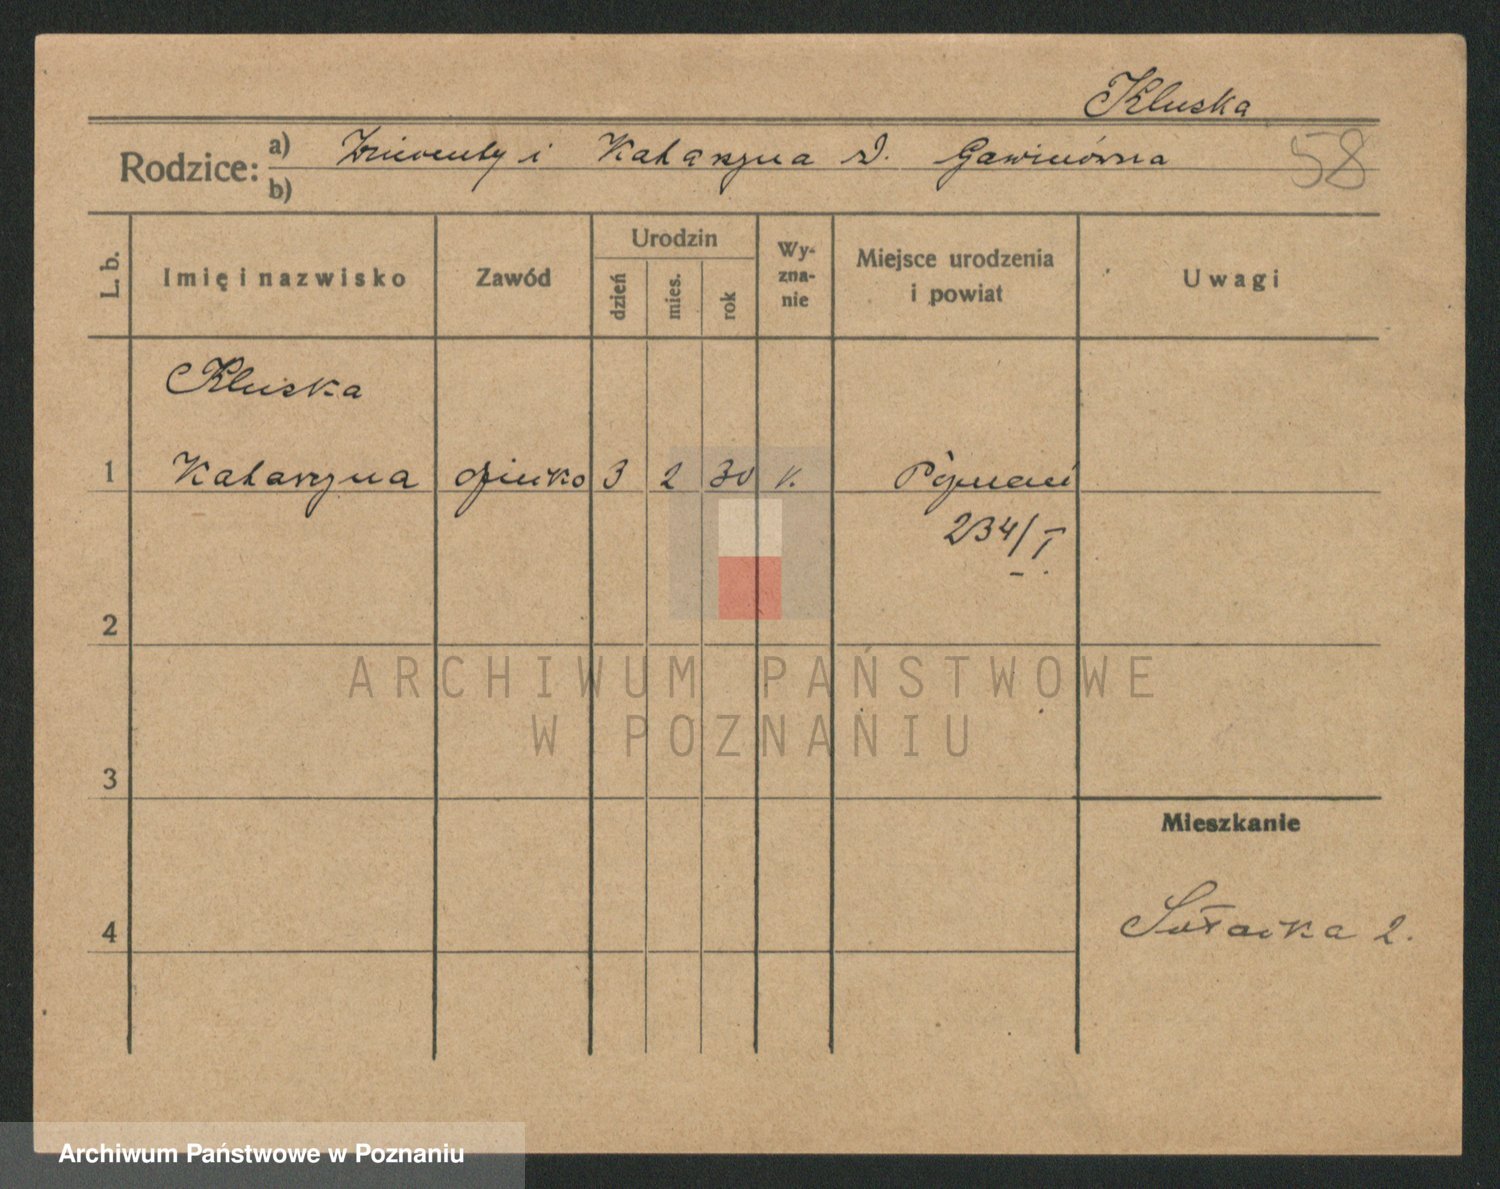 Kluska
Rodzice: a) Wincenty i Katarzyna d. Gawinówna 58
b)
L. b. Imię i nazwisko Zawód Urodzin dzień mies. rok Wy-zna-nie Miejsce urodzenia i powiat Uwagi
Kluska
1 Katarzyna dziecko 3 2 30 k. Poznań
234/I
2
ARCHIWUM PAŃSTWOWE
W POZNANIU
3
Mieszkanie
4 2.
Archiwum Państwowe w Poznaniu